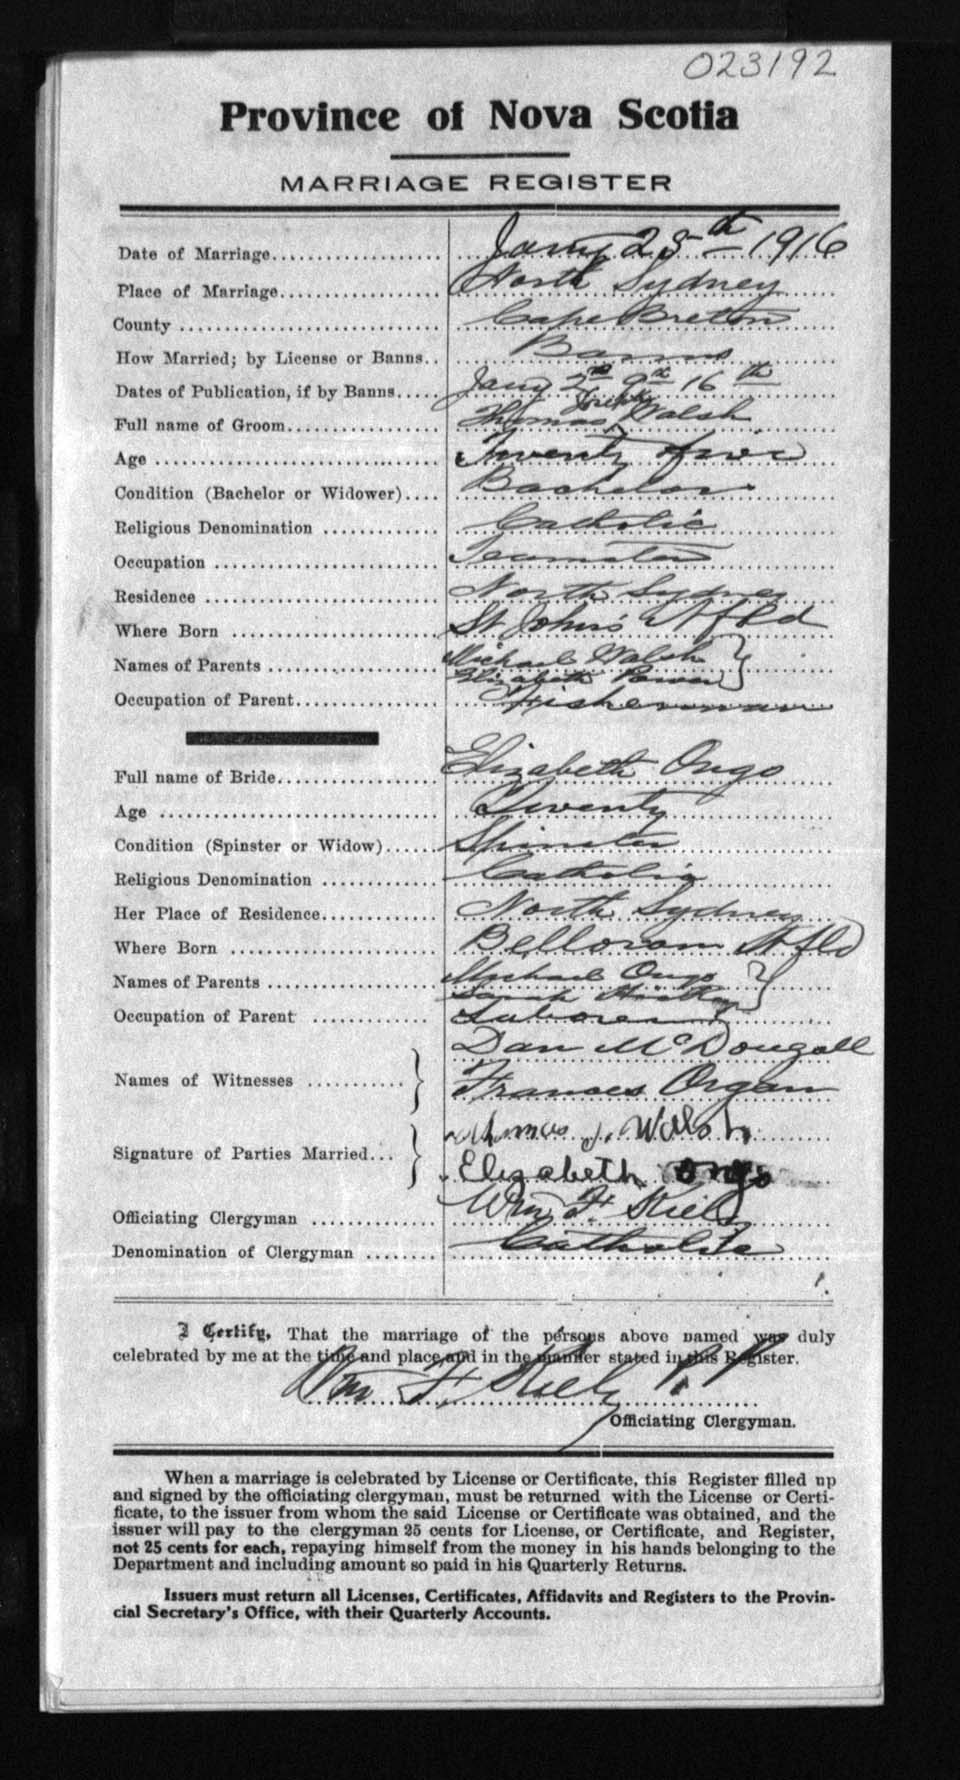 023192
Province of Nova Scotia
MARRIAGE REGISTER
Date of Marriage Jany 25th 1916
Place of Marriage North Sydney
County Cape Breton
How Married; by License or Banns Banns
Dates of Publication, if by Banns Jany 2nd 9th 16th
Full name of Groom Thomas Joseph Walsh
Age Twenty five
Condition (Bachelor or Widower) Bachelor
Religious Denomination Catholic
Occupation Teamster
Residence North Sydney
Where Born St John's Nfld
Names of Parents Michael Walsh
Elizabeth Power
Occupation of Parent Fisherman
Full name of Bride Elizabeth Ongo
Age Twenty
Condition (Spinster or Widow) Spinster
Religious Denomination Catholic
Her Place of Residence North Sydney
Where Born Belloram Nfld
Names of Parents Michael Ongo
Sarah
Occupation of Parent Laborer
Names of Witnesses Dan McDougall
Frances Organ
Signature of Parties Married Thomas J. Walsh
Elizabeth Ongo
Officiating Clergyman Wm F. Kiely
Denomination of Clergyman Catholic
I Certify, That the marriage of the persons above named was duly
celebrated by me at the time and place and in the manner stated in this Register.
Wm F. Kiely P.P.
Officiating Clergyman.
When a marriage is celebrated by License or Certificate, this Register filled up
and signed by the officiating clergyman, must be returned with the License or Certi-
ficate, to the issuer from whom the said License or Certificate was obtained, and the
issuer will pay to the clergyman 25 cents for License, or Certificate, and Register,
not 25 cents for each, repaying himself from the money in his hands belonging to the
Department and including amount so paid in his Quarterly Returns.
Issuers must return all Licenses, Certificates, Affidavits and Registers to the Provin-
cial Secretary's Office, with their Quarterly Accounts.